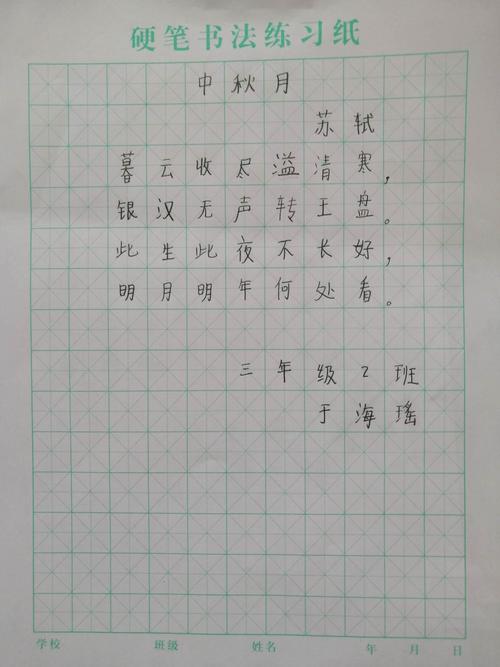 硬笔书法练习纸
中秋月
苏轼
暮云收尽溢清寒，
银汉无声转王盘。
此生此夜不长好，
明月明年何处看。
三年级2班
于海瑶
学校 班级 姓名 年 月 日